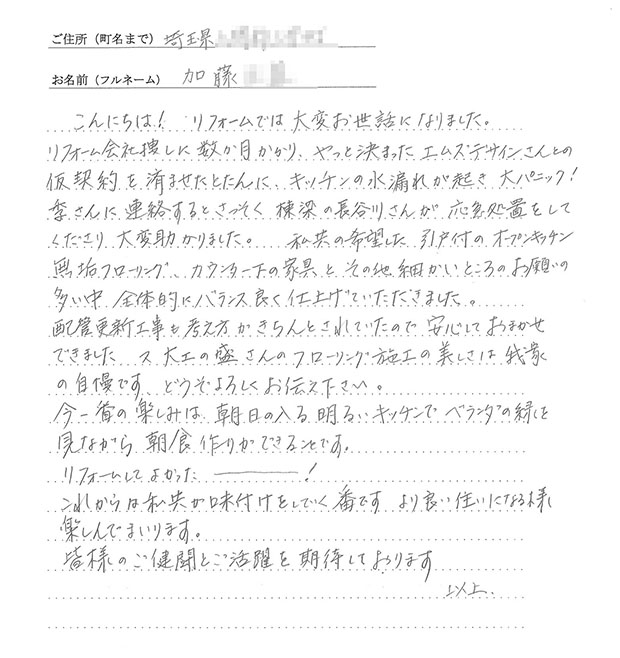 ご住所（町名まで） 埼玉県
お名前（フルネーム） 加藤
こんにちは! リフォームでは大変お世話になりました。
リフォーム会社捜しに数か月かかり、やっと決まったエムズデザインさんとの
仮契約を済ませたとたんに、キッチンの水漏れが起き大パニック!
李さんに連絡するとさっそく棟梁の長谷川さんが応急処置をして
くださり大変助かりました。 私共の希望した引戸付のオープンキッチン
無垢フローリング、カウンター下の家具とその他細かいところのお願いの
多い中全体的にバランス良く仕上げていただきました。
配管更新工事も考え方がきちんとされていたので安心しておまかせ
できました 又大工の盛さんのフローリング施工の美しさは我家
の自慢です、どうぞよろしくお伝え下さい。
今一番の楽しみは、朝日の入る明るいキッチンでベランダの緑を
見ながら朝食作りができることです。
リフォームしてよかった ―――!
これからは私共が味付けをしていく番です より良い住いになる様
楽しんでまいります。
皆様のご健闘とご活躍を期待しております
以上.